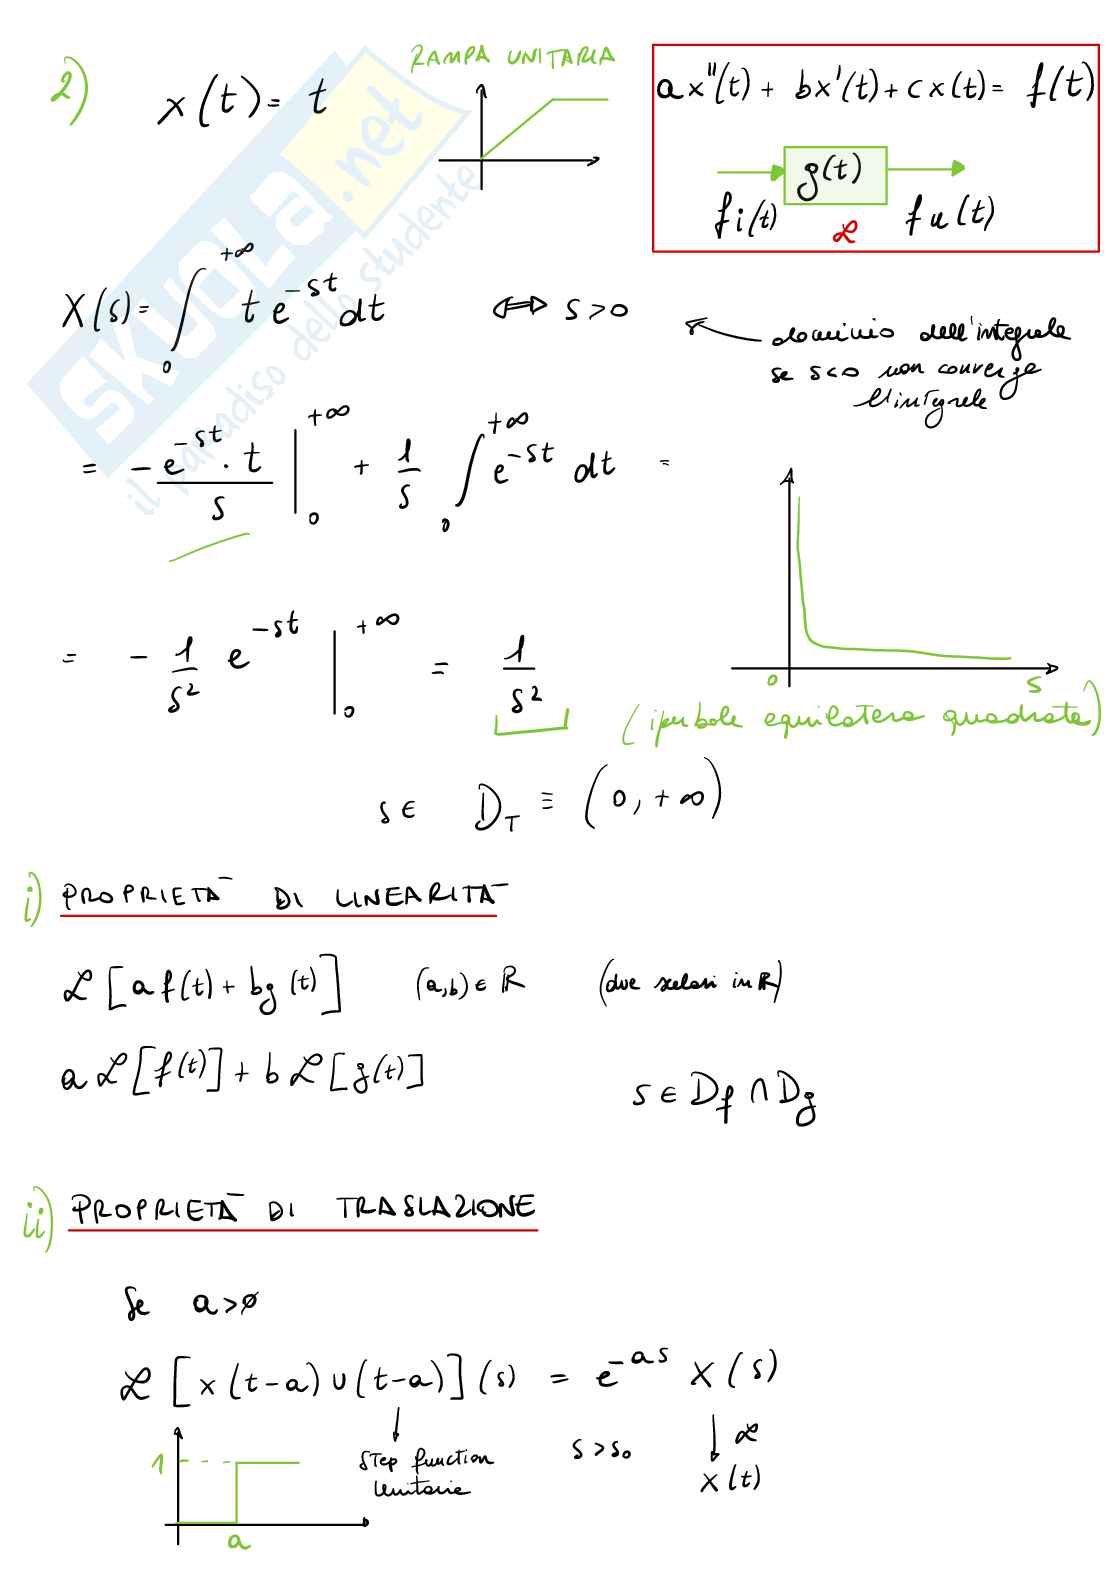 2) x(t) = t
RAMPA UNITARIA
a x''(t) + b x'(t) + c x(t) = f(t)
g(t)
fi(t) ℒ fu(t)
X(s) = ∫₀^{+∞} t e^{-st} dt ⟺ s > 0
dominio dell'integrale
se s<0 non converge
l'integrale
= - e^{-st} · t / s |₀^{+∞} + 1/s ∫₀^{+∞} e^{-st} dt =
= - 1/s² e^{-st} |₀^{+∞} = 1/s²
0 s
(iperbole equilatera quadrata)
s ∈ D_T ≡ (0, +∞)
i) PROPRIETÀ DI LINEARITÀ
ℒ [a f(t) + b g(t)] (a,b) ∈ ℝ (due scalari in ℝ)
a ℒ[f(t)] + b ℒ[g(t)]
s ∈ D_f ∩ D_g
ii) PROPRIETÀ DI TRASLAZIONE
Se a > 0
ℒ [x(t-a) u(t-a)] (s) = e^{-as} X(s)
1 a
Step function
Unitaria
s > s₀
ℒ
x(t)
SKUOLA.net
il paradiso dello studente